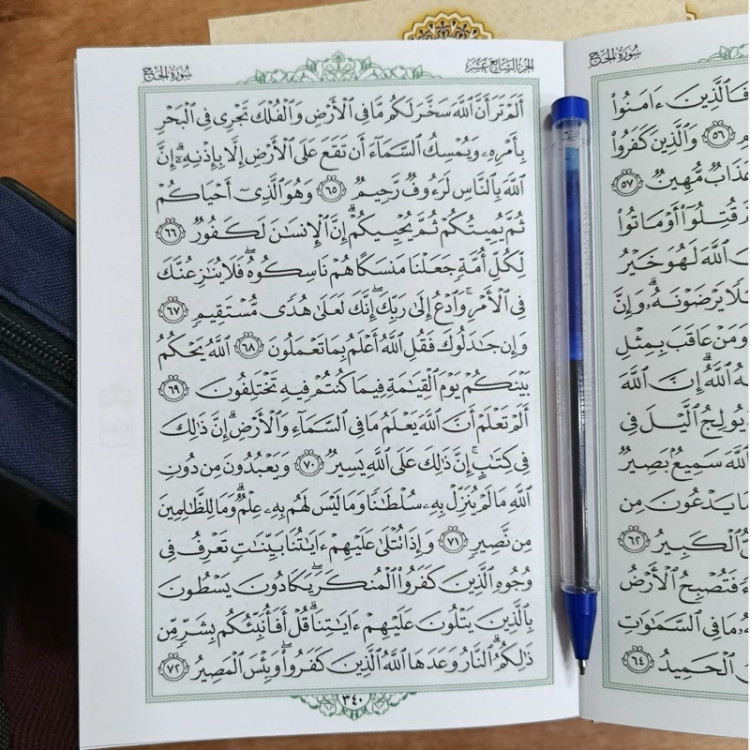 سُورَةُ الحَجِّ
الجُزْءُ السَّابِعَ عَشَرَ
أَلَمْ تَرَ أَنَّ ٱللَّهَ سَخَّرَ لَكُم مَّا فِي ٱلْأَرْضِ وَٱلْفُلْكَ تَجْرِي فِي ٱلْبَحْرِ
بِأَمْرِهِۦ وَيُمْسِكُ ٱلسَّمَآءَ أَن تَقَعَ عَلَى ٱلْأَرْضِ إِلَّا بِإِذْنِهِۦٓۗ إِنَّ
ٱللَّهَ بِٱلنَّاسِ لَرَءُوفٌ رَّحِيمٌ ٦٥ وَهُوَ ٱلَّذِيٓ أَحْيَاكُمْ
ثُمَّ يُمِيتُكُمْ ثُمَّ يُحْيِيكُمْۗ إِنَّ ٱلْإِنسَٰنَ لَكَفُورٌ ٦٦
لِّكُلِّ أُمَّةٍ جَعَلْنَا مَنسَكًا هُمْ نَاسِكُوهُۖ فَلَا يُنَٰزِعُنَّكَ
فِي ٱلْأَمْرِۚ وَٱدْعُ إِلَىٰ رَبِّكَۖ إِنَّكَ لَعَلَىٰ هُدًى مُّسْتَقِيمٍ ٦٧
وَإِن جَٰدَلُوكَ فَقُلِ ٱللَّهُ أَعْلَمُ بِمَا تَعْمَلُونَ ٦٨ ٱللَّهُ يَحْكُمُ
بَيْنَكُمْ يَوْمَ ٱلْقِيَٰمَةِ فِيمَا كُنتُمْ فِيهِ تَخْتَلِفُونَ ٦٩
أَلَمْ تَعْلَمْ أَنَّ ٱللَّهَ يَعْلَمُ مَا فِي ٱلسَّمَآءِ وَٱلْأَرْضِۚ إِنَّ ذَٰلِكَ
فِي كِتَٰبٍۚ إِنَّ ذَٰلِكَ عَلَى ٱللَّهِ يَسِيرٌ ٧٠ وَيَعْبُدُونَ مِن دُونِ
ٱللَّهِ مَا لَمْ يُنَزِّلْ بِهِۦ سُلْطَٰنًا وَمَا لَيْسَ لَهُم بِهِۦ عِلْمٌۗ وَمَا لِلظَّٰلِمِينَ
مِن نَّصِيرٍ ٧١ وَإِذَا تُتْلَىٰ عَلَيْهِمْ ءَايَٰتُنَا بَيِّنَٰتٍ تَعْرِفُ فِي
وُجُوهِ ٱلَّذِينَ كَفَرُوا۟ ٱلْمُنكَرَۖ يَكَادُونَ يَسْطُونَ
بِٱلَّذِينَ يَتْلُونَ عَلَيْهِمْ ءَايَٰتِنَاۗ قُلْ أَفَأُنَبِّئُكُم بِشَرٍّ مِّن
ذَٰلِكُمُۚ ٱلنَّارُ وَعَدَهَا ٱللَّهُ ٱلَّذِينَ كَفَرُوا۟ۖ وَبِئْسَ ٱلْمَصِيرُ ٧٢
٣٤٠
سُورَةُ الحَجِّ
فَٱلَّذِينَ ءَامَنُوا۟
٥٦ وَٱلَّذِينَ كَفَرُوا۟
عَذَابٌ مُّهِينٌ ٥٧
قُتِلُوٓا۟ أَوْ مَاتُوا۟
ٱللَّهَ لَهُوَ خَيْرُ
يَرْضَوْنَهُۥۗ وَإِنَّ
وَمَنْ عَاقَبَ بِمِثْلِ
ٱللَّهُۚ إِنَّ ٱللَّهَ
يُولِجُ ٱلَّيْلَ فِي
ٱللَّهَ سَمِيعٌۢ بَصِيرٌ
مَا يَدْعُونَ مِن
ٱلْكَبِيرُ ٦٢
فَتُصْبِحُ ٱلْأَرْضُ
مَا فِي ٱلسَّمَٰوَٰتِ
ٱلْحَمِيدُ ٦٤